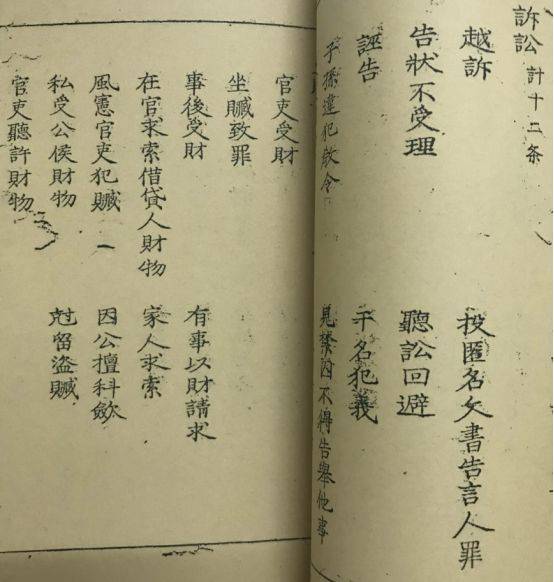 訴訟 計十二条
越訴
投匿名文書告言人罪
告状不受理
聽訟回避
誣告
干名犯義
子孫違犯教令
見禁囚不得告舉他事
官吏受財
坐贓致罪
事後受財
有事以財請求
在官求索借貸人財物
家人求索
風憲官吏犯贓
因公擅科斂
私受公侯財物
尅留盜贓
官吏聽許財物